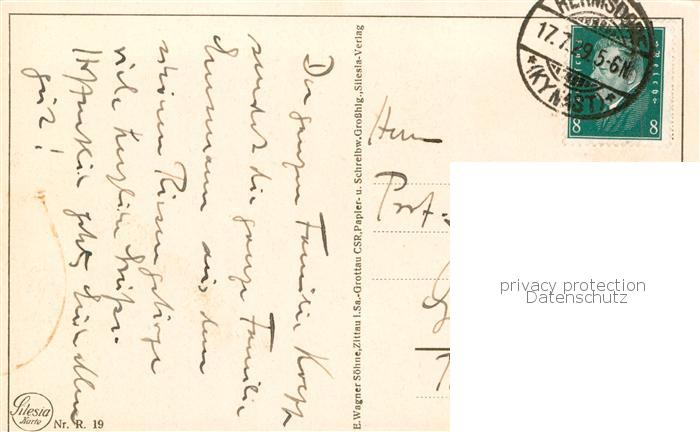 Der ganzen Familie
sendet die ganze Familie
aus dem
schönen Riesengebirge
viele herzliche Grüße.
Hoffentlich geht es Euch allen
gut!
Silesia
Karte
Nr. R. 19
E. Wagner Söhne, Zittau i. Sa.-Grottau CSR, Papier- u. Schreibw. Großhlg., Silesia-Verlag
HERMSDORF
17.7.29.5-6N.
*(KYNAST)*
8 8
Herrn
Prof.
privacy protection
Datenschutz